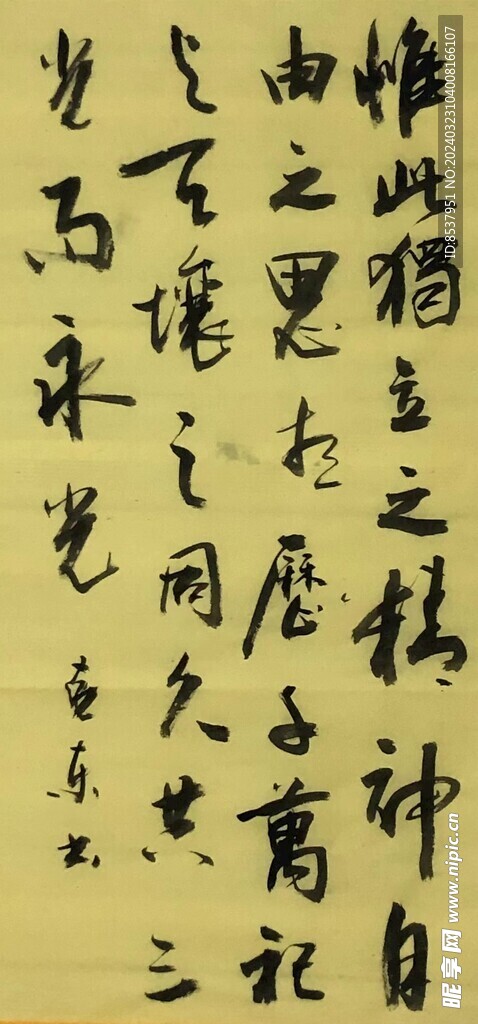 惟此獨立之精神自
由之思想歷千萬祀
与天壤之同久共三
光而永光
东书
ID:8537951 NO:20240323104008166107
昵享网 www.nipic.cn